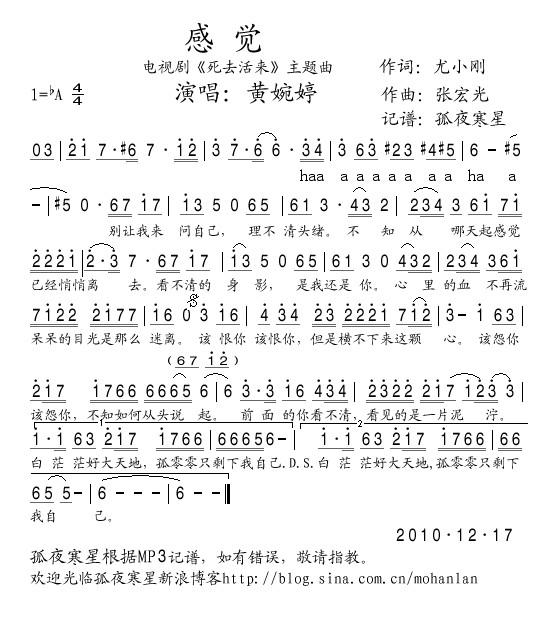 感 觉
电视剧《死去活来》主题曲
作词：尤小刚
1=♭A 4/4
演唱：黄婉婷
作曲：张宏光
记谱：孤夜寒星
03|21 7·#6 7·12|3 7·6 6·34|3 63 #23 #4#5|6- #5
haa a a a a a a ha a
-|#5 0·67 17|13 5 0 65|61 3·43|234 3 61 71
别让我来 问自己，理不 清头绪。不 知 从 哪天起感觉
2221|2·3 7·67 17|13 5 0 65|61 30 432|234 361
已经悄悄离 去。看不清的 身 影，是我还是 你。心 里 的血 不再流
7122 2177|16 0 3 16|434 23 2221 712|3-13 63
呆呆的目光是那么 迷离。该 恨你 该恨你，但是横不下来这颗 心。该怨你
(67 12)
217 1766 6665 6|6 3·3 16 434|2322 217 123 3|
该怨你，不知如何从头说 起。前 面 的你看不清，看见的是一片泥 泞。
1 2
1·1 63 217 1766|66656-|1·1 63 217 1766|66
白 茫 茫好大天地，孤零零只剩下我自己.D.S.白 茫 茫好大天地,孤零零只剩下
65 5-|6---|6--‖
我自 己。
2010·12·17
孤夜寒星根据MP3记谱，如有错误，敬请指教。
欢迎光临孤夜寒星新浪博客http://blog.sina.com.cn/mohanlan